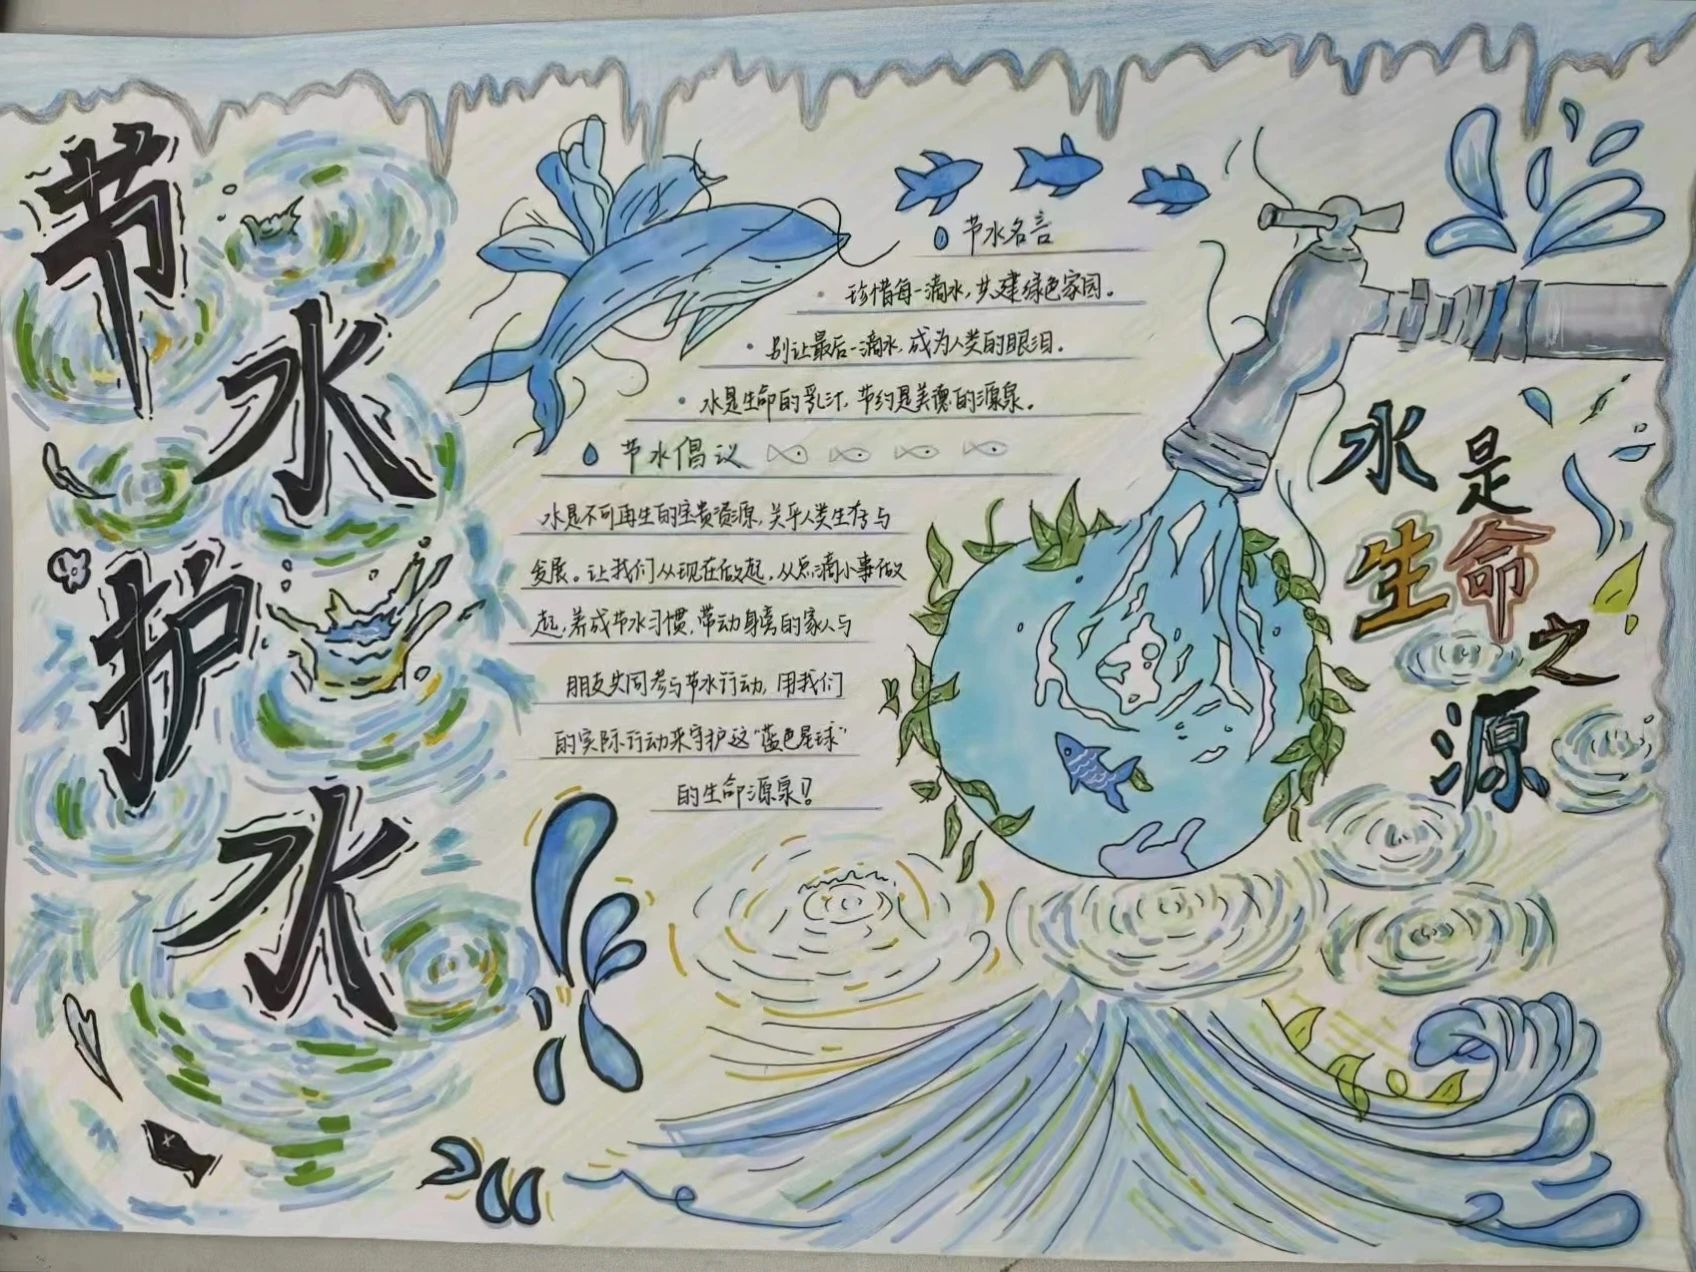 节水护水
节水名言
珍惜每一滴水，共建绿色家园。
别让最后一滴水，成为人类的眼泪。
水是生命的乳汁，节约是美德的源泉。
节水倡议
水是不可再生的宝贵资源，关乎人类生存与
发展。让我们从现在做起，从点滴小事做
起，养成节水习惯，带动身旁的家人与
朋友共同参与节水行动，用我们
的实际行动来守护这“蓝色星球”
的生命源泉！
水是生命之源